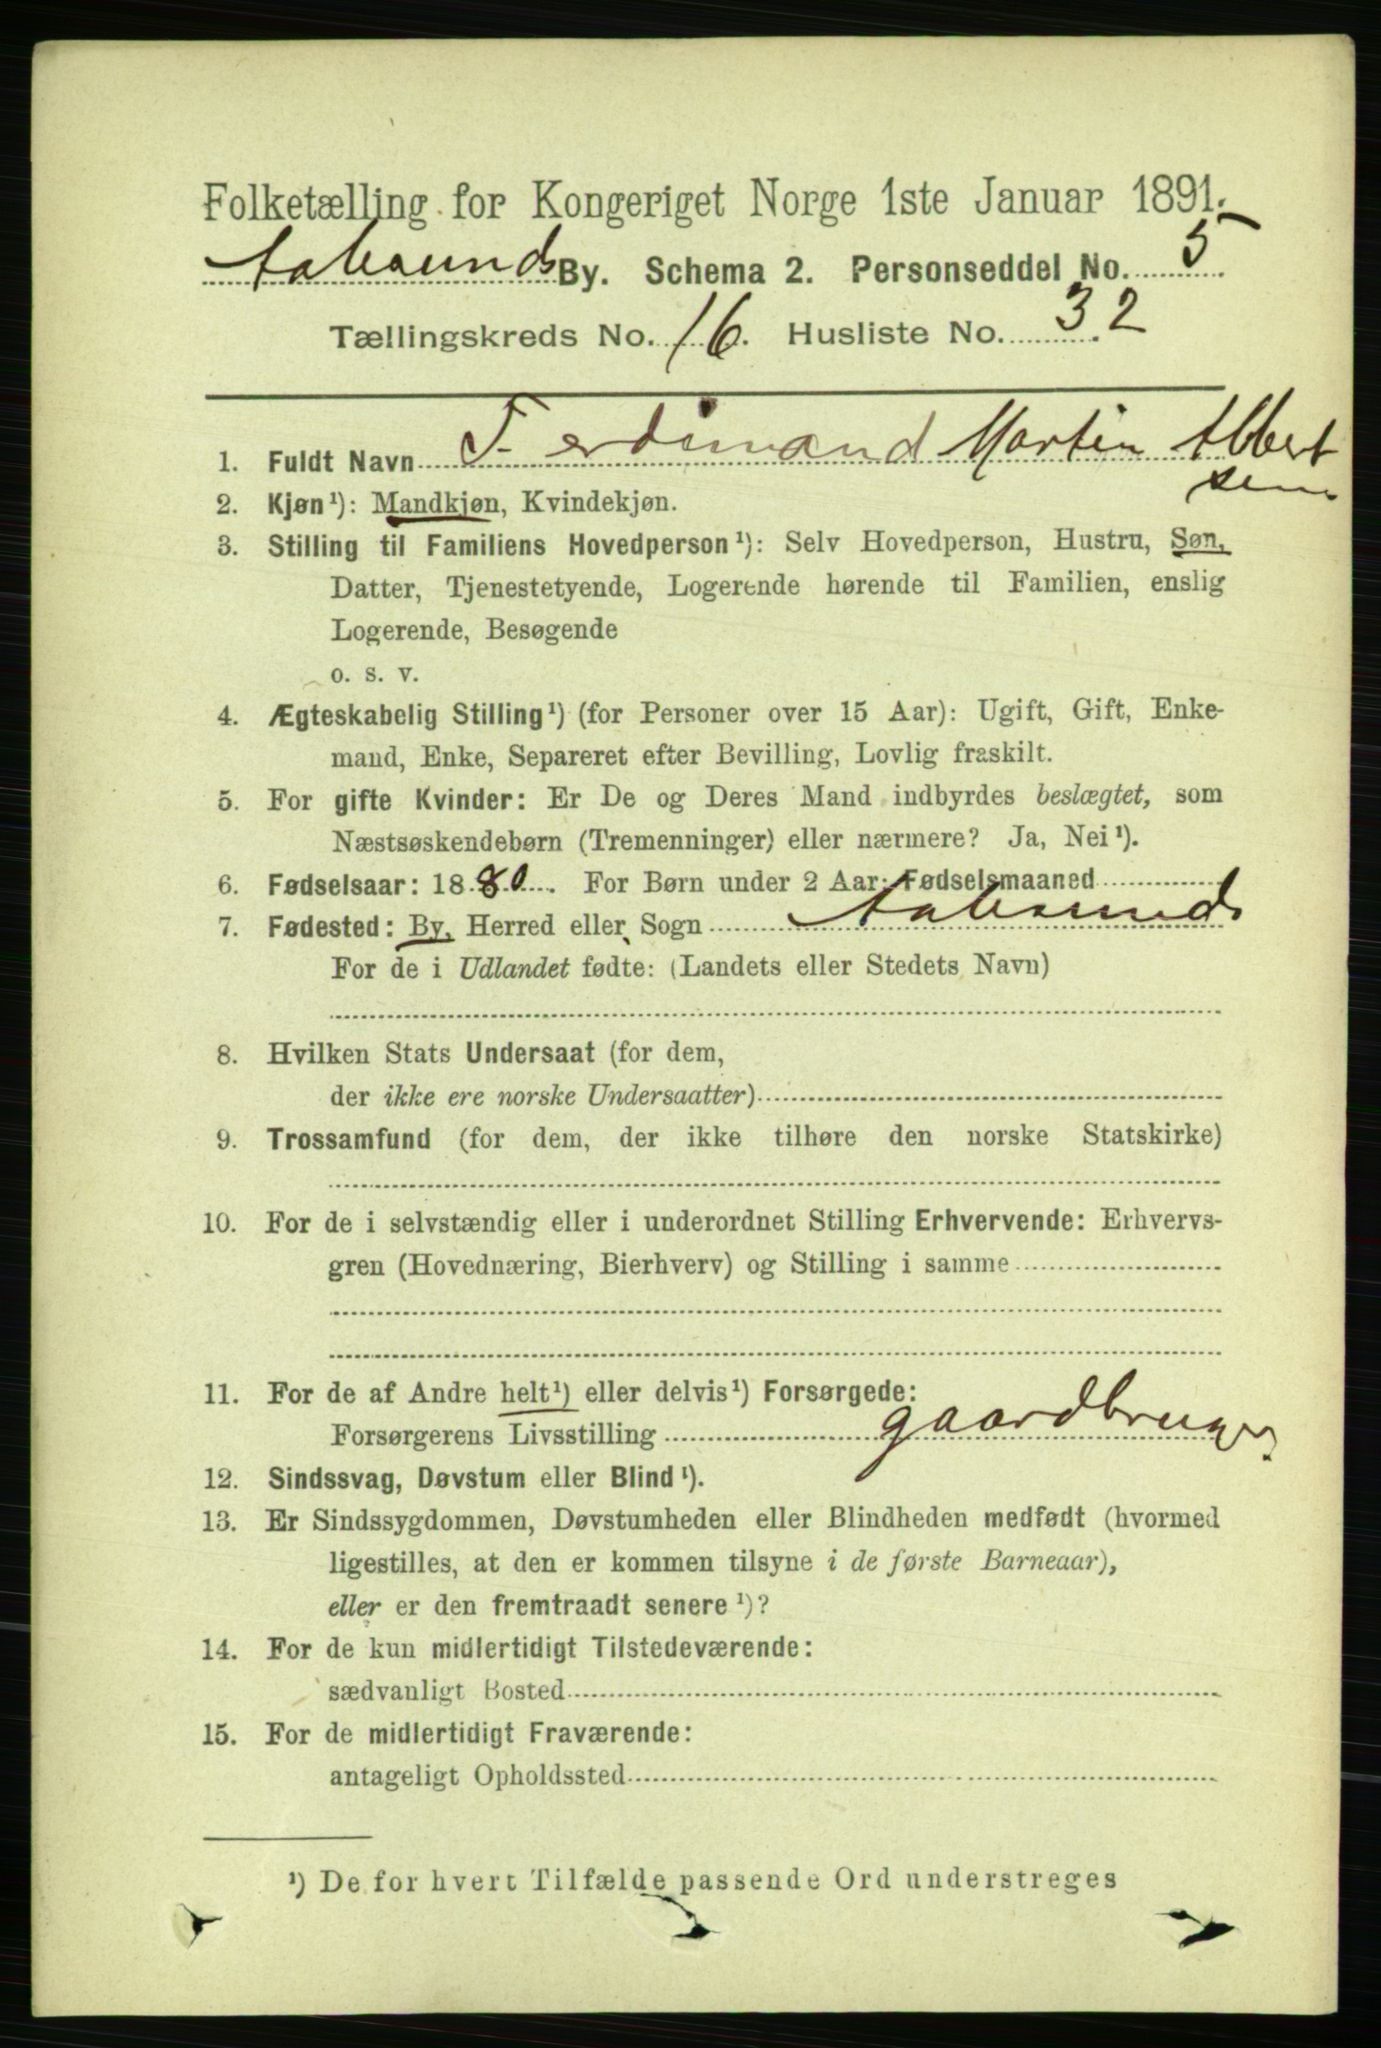 Folketælling for Kongeriget Norge 1ste Januar 1891.
Aalesunds By. Schema 2. Personseddel No. 5
Tællingskreds No. 16. Husliste No. 32
1. Fuldt Navn Ferdinand Martin Albert
sen
2. Kjøn¹): Mandkjøn, Kvindekjøn.
3. Stilling til Familiens Hovedperson¹): Selv Hovedperson, Hustru, Søn,
Datter, Tjenestetyende, Logerende hørende til Familien, enslig
Logerende, Besøgende
o. s. v.
4. Ægteskabelig Stilling¹) (for Personer over 15 Aar): Ugift, Gift, Enke-
mand, Enke, Separeret efter Bevilling, Lovlig fraskilt.
5. For gifte Kvinder: Er De og Deres Mand indbyrdes beslægtet, som
Næstsøskendebørn (Tremenninger) eller nærmere? Ja, Nei¹).
6. Fødselsaar: 1880. For Børn under 2 Aar: Fødselsmaaned
7. Fødested: By, Herred eller Sogn Aalesunds
For de i Udlandet fødte: (Landets eller Stedets Navn)
8. Hvilken Stats Undersaat (for dem,
der ikke ere norske Undersaatter)
9. Trossamfund (for dem, der ikke tilhøre den norske Statskirke)
10. For de i selvstændig eller i underordnet Stilling Erhvervende: Erhvervs-
gren (Hovednæring, Bierhverv) og Stilling i samme
11. For de af Andre helt¹) eller delvis¹) Forsørgede:
Forsørgerens Livsstilling gaardbruger.
12. Sindssvag, Døvstum eller Blind¹).
13. Er Sindssygdommen, Døvstumheden eller Blindheden medfødt (hvormed
ligestilles, at den er kommen tilsyne i de første Barneaar),
eller er den fremtraadt senere¹)?
14. For de kun midlertidigt Tilstedeværende:
sædvanligt Bosted
15. For de midlertidigt Fraværende:
antageligt Opholdssted
¹) De for hvert Tilfælde passende Ord understreges